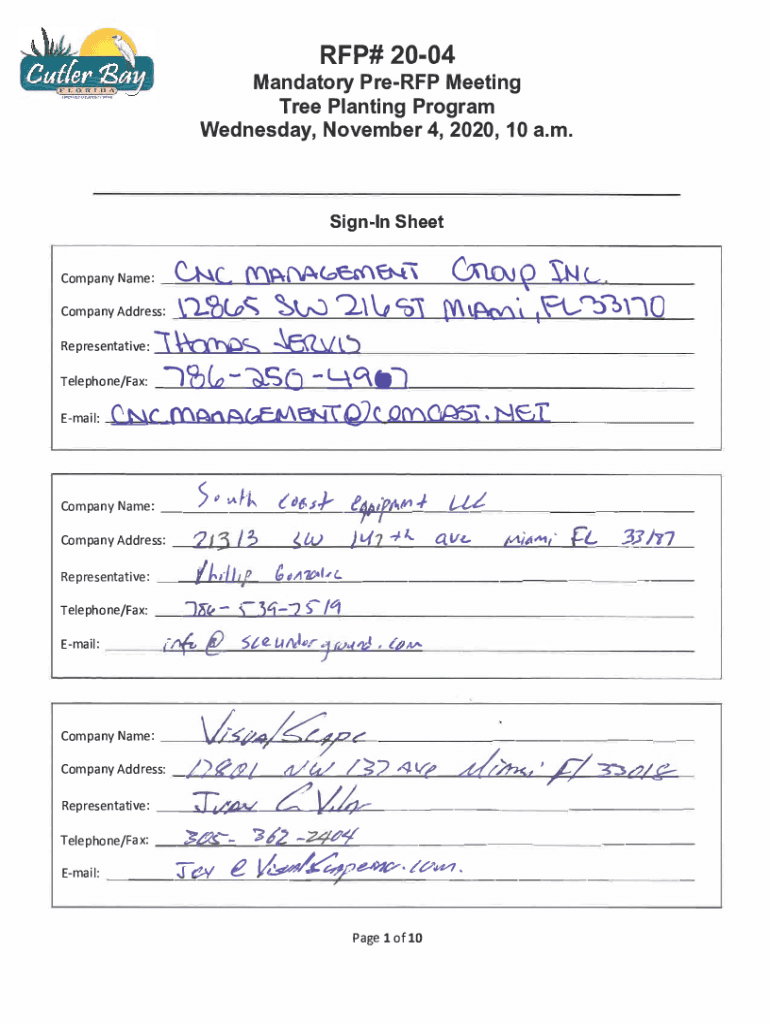 Cutler Bay
FLORIDA
RFP# 20-04
Mandatory Pre-RFP Meeting
Tree Planting Program
Wednesday, November 4, 2020, 10 a.m.
Sign-In Sheet
Company Name: CNC MANAGEMENT GROUP INC.
Company Address: 12865 SW 216 ST MIAMI, FL 33170
Representative: THOMAS JERVIS
Telephone/Fax: 786-250-4907
E-mail: CNCMANAGEMENT@COMCAST.NET
Company Name: South Coast Equipment LLC
Company Address: 21313 SW 147th ave Miami FL 33187
Representative: Phillip Gonzalez
Telephone/Fax: 786-539-7519
E-mail: info@sceunderground.com
Company Name: VisualScape
Company Address: 17801 NW 137 Ave Miami Fl 33018
Representative: Juan C
Telephone/Fax: 305-362-2404
E-mail:
Page 1 of 10